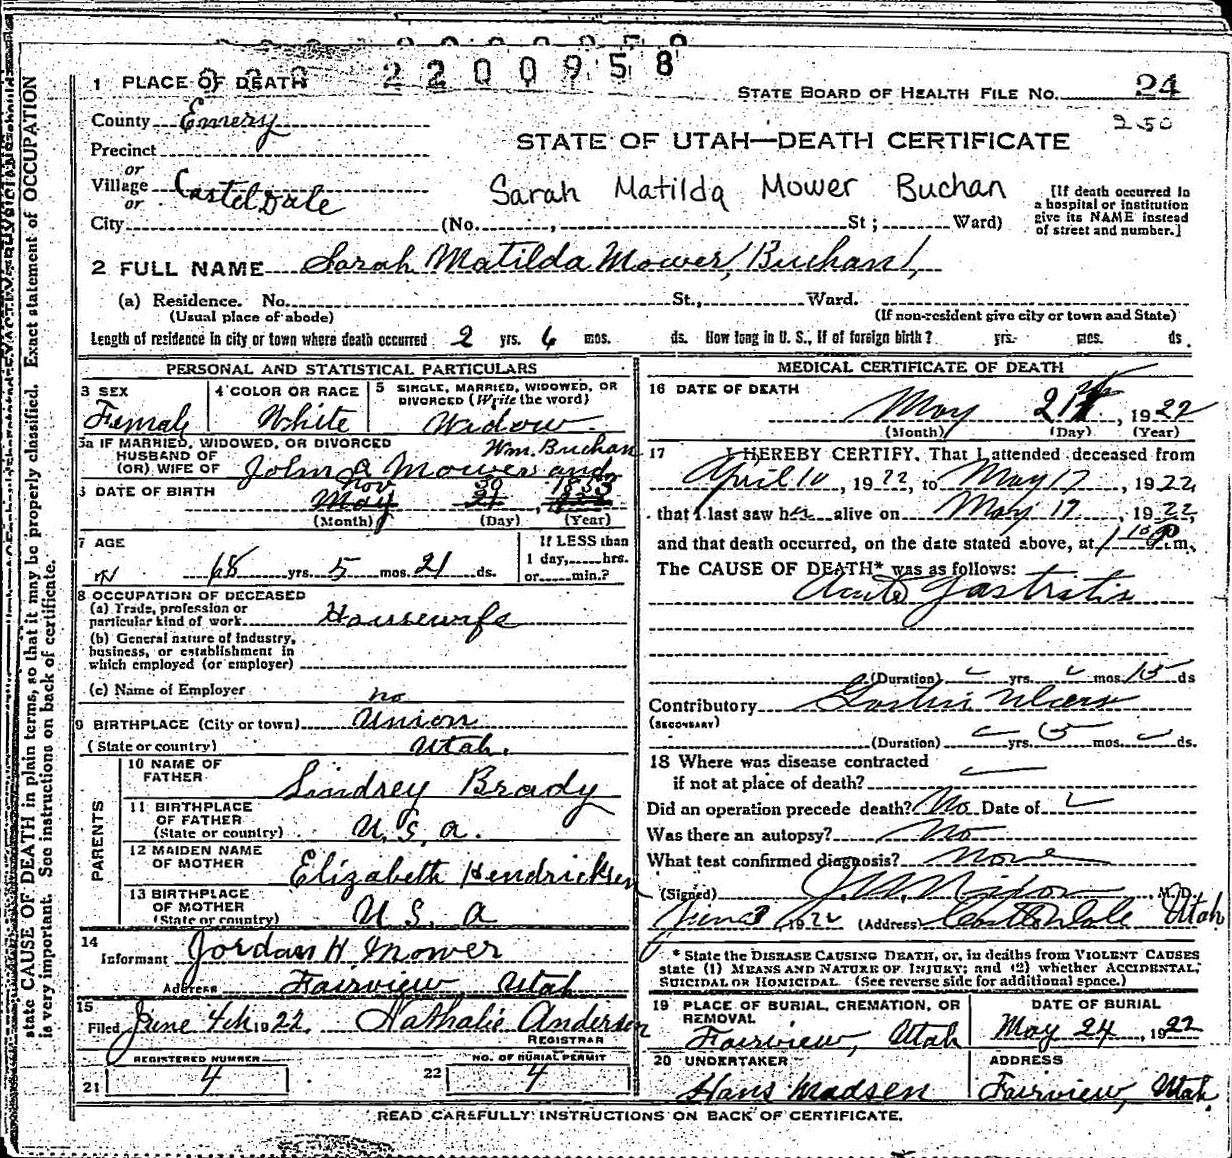 2200958
1 PLACE OF DEATH
STATE BOARD OF HEALTH FILE NO. 24
2.50
County Emery
STATE OF UTAH—DEATH CERTIFICATE
Precinct
or
Village Castel Dale
or
Sarah Matilda Mower Buchan
[If death occurred in a hospital or institution give its NAME instead of street and number.]
City (No. , St; Ward)
2 FULL NAME Sarah Matilda Mower (Buchan)
(a) Residence. No. St., Ward.
(Usual place of abode) (If non-resident give city or town and State)
Length of residence in city or town where death occurred 2 yrs. 6 mos. ds. How long in U. S., if of foreign birth? yrs. mos. ds.
PERSONAL AND STATISTICAL PARTICULARS
3 SEX Female
4 COLOR OR RACE White
5 SINGLE, MARRIED, WIDOWED, OR DIVORCED (Write the word) Widow.
3a IF MARRIED, WIDOWED, OR DIVORCED
HUSBAND OF Wm. Buchan
(OR) WIFE OF John Mower and
Nov 30 1853
6 DATE OF BIRTH May 21
(Month) (Day) (Year)
7 AGE
68 yrs. 5 mos. 21 ds.
If LESS than 1 day, hrs. or min.?
8 OCCUPATION OF DECEASED
(a) Trade, profession or particular kind of work Housewife
(b) General nature of industry, business, or establishment in which employed (or employer)
(c) Name of Employer no
9 BIRTHPLACE (City or town) Union
(State or country) Utah.
PARENTS
10 NAME OF FATHER Lindrey Brady
11 BIRTHPLACE OF FATHER (State or country) U. S. a.
12 MAIDEN NAME OF MOTHER Elizabeth Hendricksen
13 BIRTHPLACE OF MOTHER (State or country) U. S. a
14
Informant Jordan H Mower
Address Fairview, Utah
15
Filed June 4th 1922. Nathalie Anderson
REGISTRAR
REGISTERED NUMBER
21 4
NO. OF BURIAL PERMIT
22 4
MEDICAL CERTIFICATE OF DEATH
16 DATE OF DEATH
May 21st, 1922
(Month) (Day) (Year)
17 I HEREBY CERTIFY, That I attended deceased from
April 10, 1922, to May 17, 1922,
that I last saw her alive on May 17, 1922,
and that death occurred, on the date stated above, at 1 10 P.m.
The CAUSE OF DEATH* was as follows:
Acute Gastritis
(Duration) yrs. mos. 15 ds
Contributory Gastric Ulcers
(SECONDARY)
(Duration) yrs. 5 mos. ds.
18 Where was disease contracted
if not at place of death?
Did an operation precede death? No Date of
Was there an autopsy? No
What test confirmed diagnosis? None
(Signed) J. W. Nixon M. D.
June 3, 1922 (Address) Castle Dale Utah
* State the DISEASE CAUSING DEATH, or, in deaths from VIOLENT CAUSES
state (1) MEANS AND NATURE OF INJURY; and (2) whether ACCIDENTAL,
SUICIDAL OR HOMICIDAL. (See reverse side for additional space.)
19 PLACE OF BURIAL, CREMATION, OR REMOVAL
Fairview, Utah
DATE OF BURIAL
May 24, 1922
20 UNDERTAKER
Hans Madsen
ADDRESS
Fairview, Utah.
READ CAREFULLY INSTRUCTIONS ON BACK OF CERTIFICATE.
state CAUSE OF DEATH in plain terms, so that it may be properly classified. Exact statement of OCCUPATION
is very important. See instructions on back of certificate.